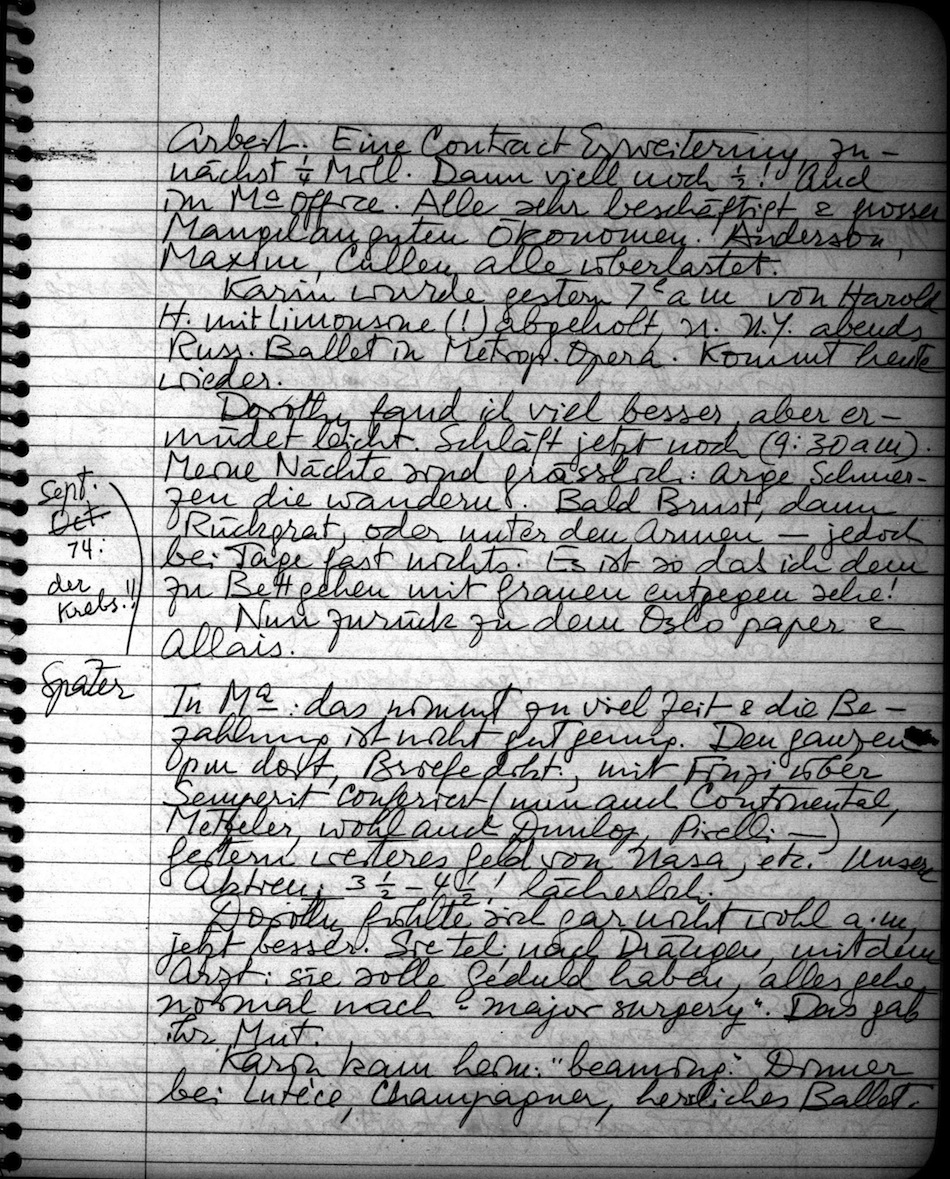 Arbeit. Eine Contract Erweiterung, zu-
nächst ¼ Mill. Dann viell noch ½! Auch
im Ma office. Alle sehr beschäftigt & grosser
Mangel an guten Ökonomen. Anderson,
Maxim, Cullen, alle überlastet.
Karin wurde gestern 7e am von Harold
H. mit Limousine (!) abgeholt, n. N.Y. abends
Russ. Ballet in Metrop. Opera. Kommt heute
wieder.
Dorothy fand ich viel besser, aber er-
müdet leicht. Schläft jetzt noch (9:30 am).
Meine Nächte sind grässlich: arge Schmer-
zen die wandern. Bald Brust, dann
Rückgrat, oder unter den Armen — jedoch
bei Tage fast nichts. Es ist so das ich dem
zu Bett gehen mit grauen entgegen sehe!
Sept.
Oct.
74:
der
Krebs!!
Nun zurück zu dem Oslo paper &
Allais.
Später
In Ma: das nimmt zu viel Zeit & die Be-
zahlung ist nicht gut genug. Den ganzen
pm dort, Briefe dikt., mit Finzi über
Semperit conferiert (nun auch Continental,
Metzeler, wohl auch Dunlop, Pirelli —)
gestern weiteres Geld von Nasa, etc. Unsere
Aktien: 3 ½ – 4 ½! lächerlich.
Dorothy fühlte sich gar nicht wohl a.m.,
jetzt besser. Sie tel. nach Drängen, mit dem
Arzt: sie solle Geduld haben, alles gehe
normal nach "major surgery". Das gab
ihr Mut.
Karin kam heim: "beaming." Dinner
bei Lutèce, Champagner, herrliches Ballet.